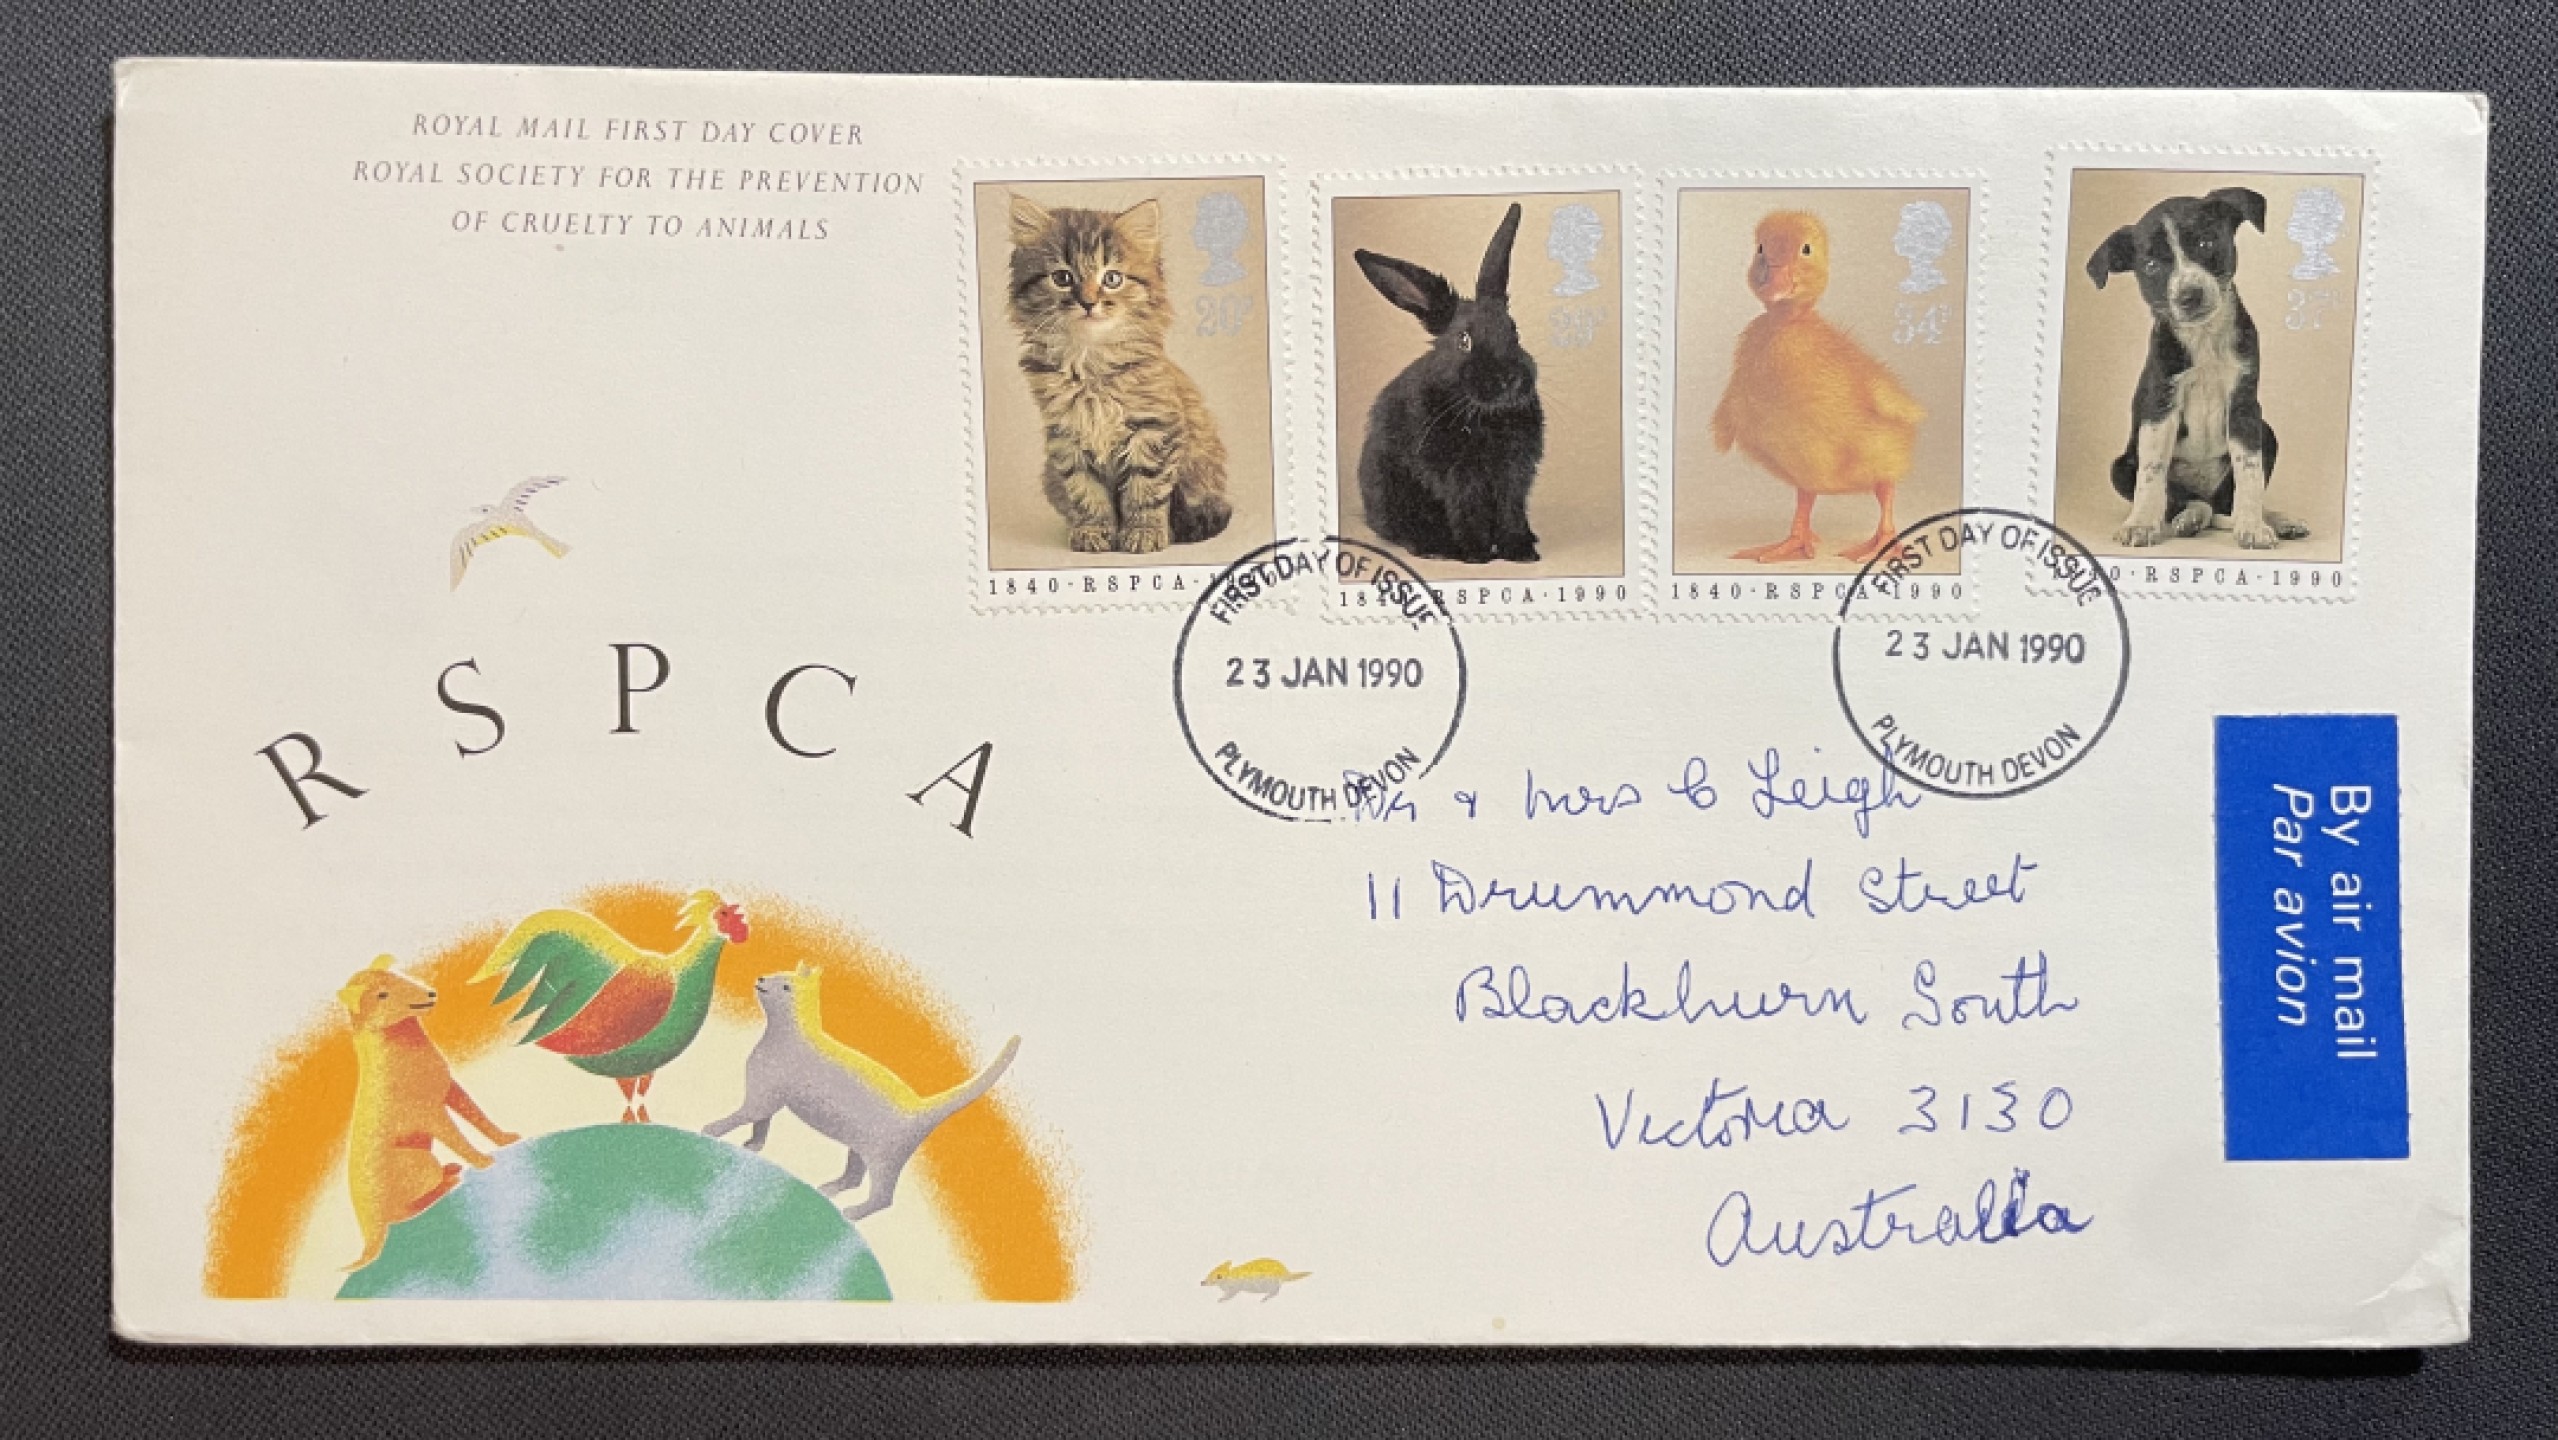 ROYAL MAIL FIRST DAY COVER
ROYAL SOCIETY FOR THE PREVENTION
OF CRUELTY TO ANIMALS
20P
1840·RSPCA·
29P
1840·RSPCA·1990
34P
1840·RSPCA·1990
37P
0·RSPCA·1990
FIRST DAY OF ISSUE
23 JAN 1990
PLYMOUTH DEVON
FIRST DAY OF ISSUE
23 JAN 1990
PLYMOUTH DEVON
RSPCA
& Mrs C Leigh
11 Drummond Street
Blackburn South
Victoria 3130
Australia
By air mail
Par avion